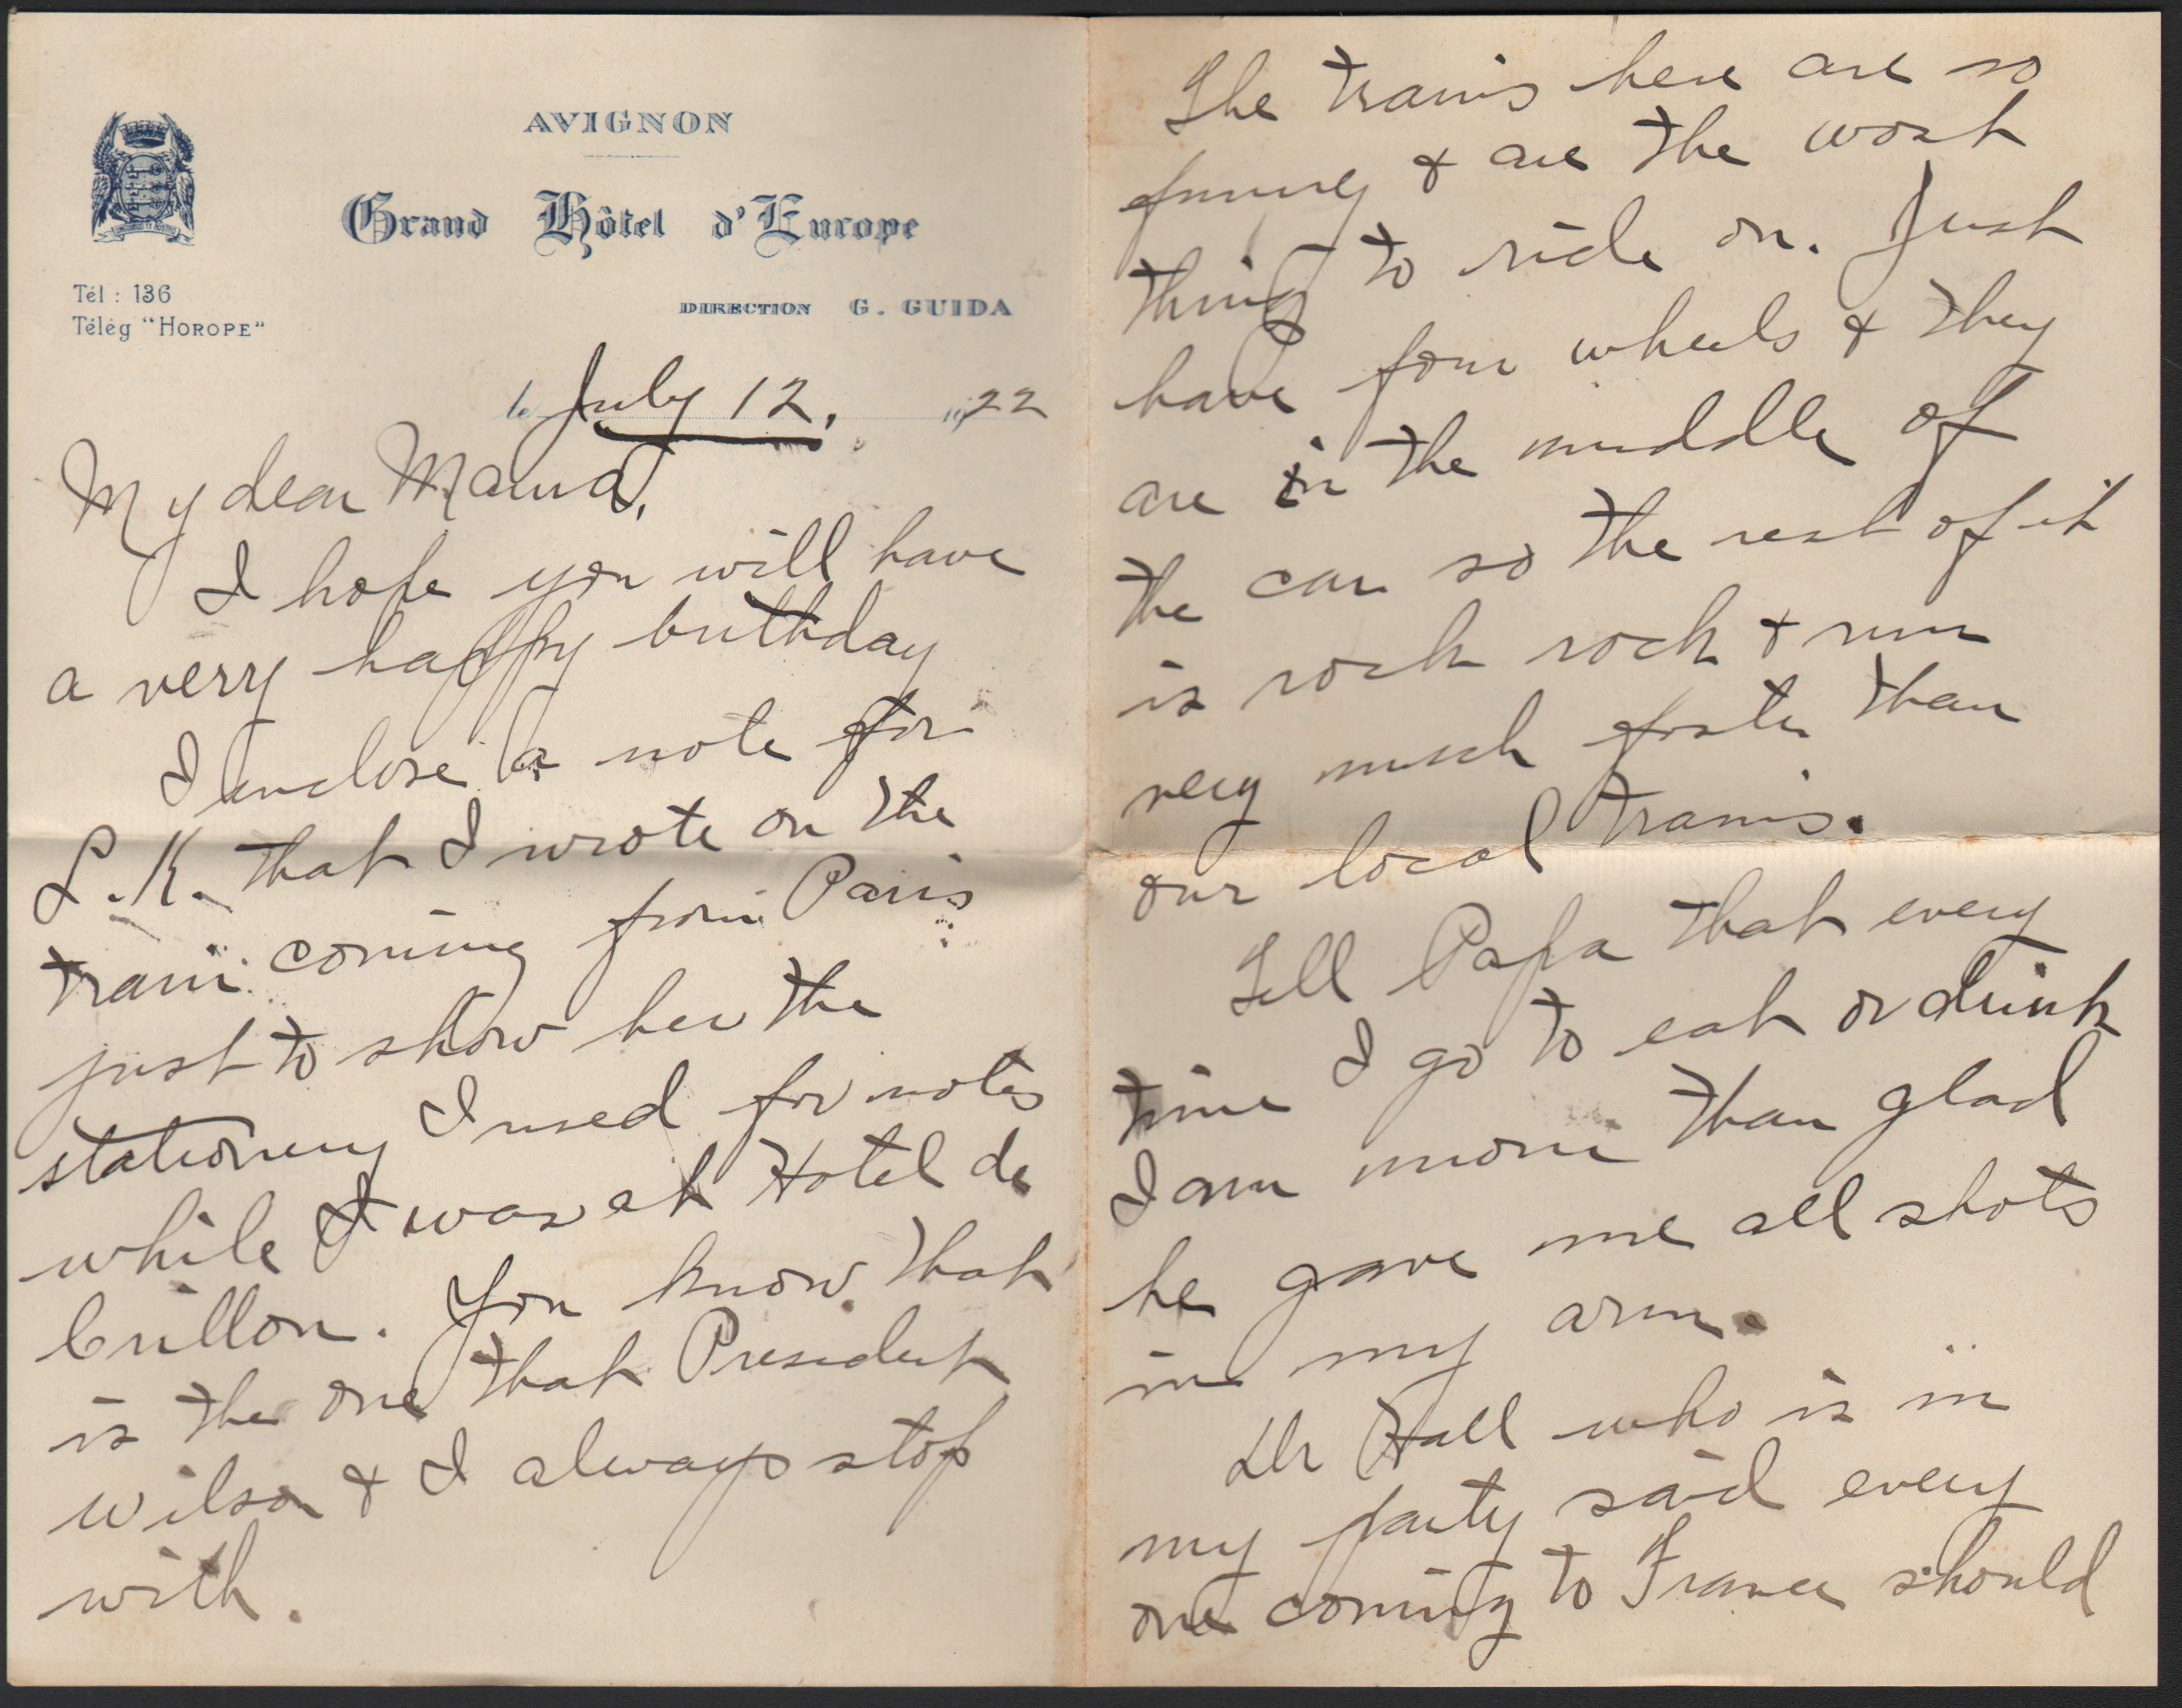 AVIGNON
Grand Hôtel d'Europe
DIRECTION G. GUIDA
Tél : 136
Télég "HOROPE"
le July 12, 1922
My dear Mama,
I hope you will have
a very happy birthday
I enclose a note for
L.K. that I wrote on the
train coming from Paris
just to show her the
stationery I used for notes
while I was at Hotel de
Crillon. You know that
is the one that President
Wilson & I always stop
with.
The trains here are so
funny & are the worst
thing to ride on. Just
have four wheels & they
are in the middle of
the car so the rest of it
is rock rock & run
very much faster than
our local trains.
Tell Papa that every
time I go to eat or drink
I am more than glad
he gave me all shots
in my arm.
Dr Hall who is in
my party said every
one coming to France should